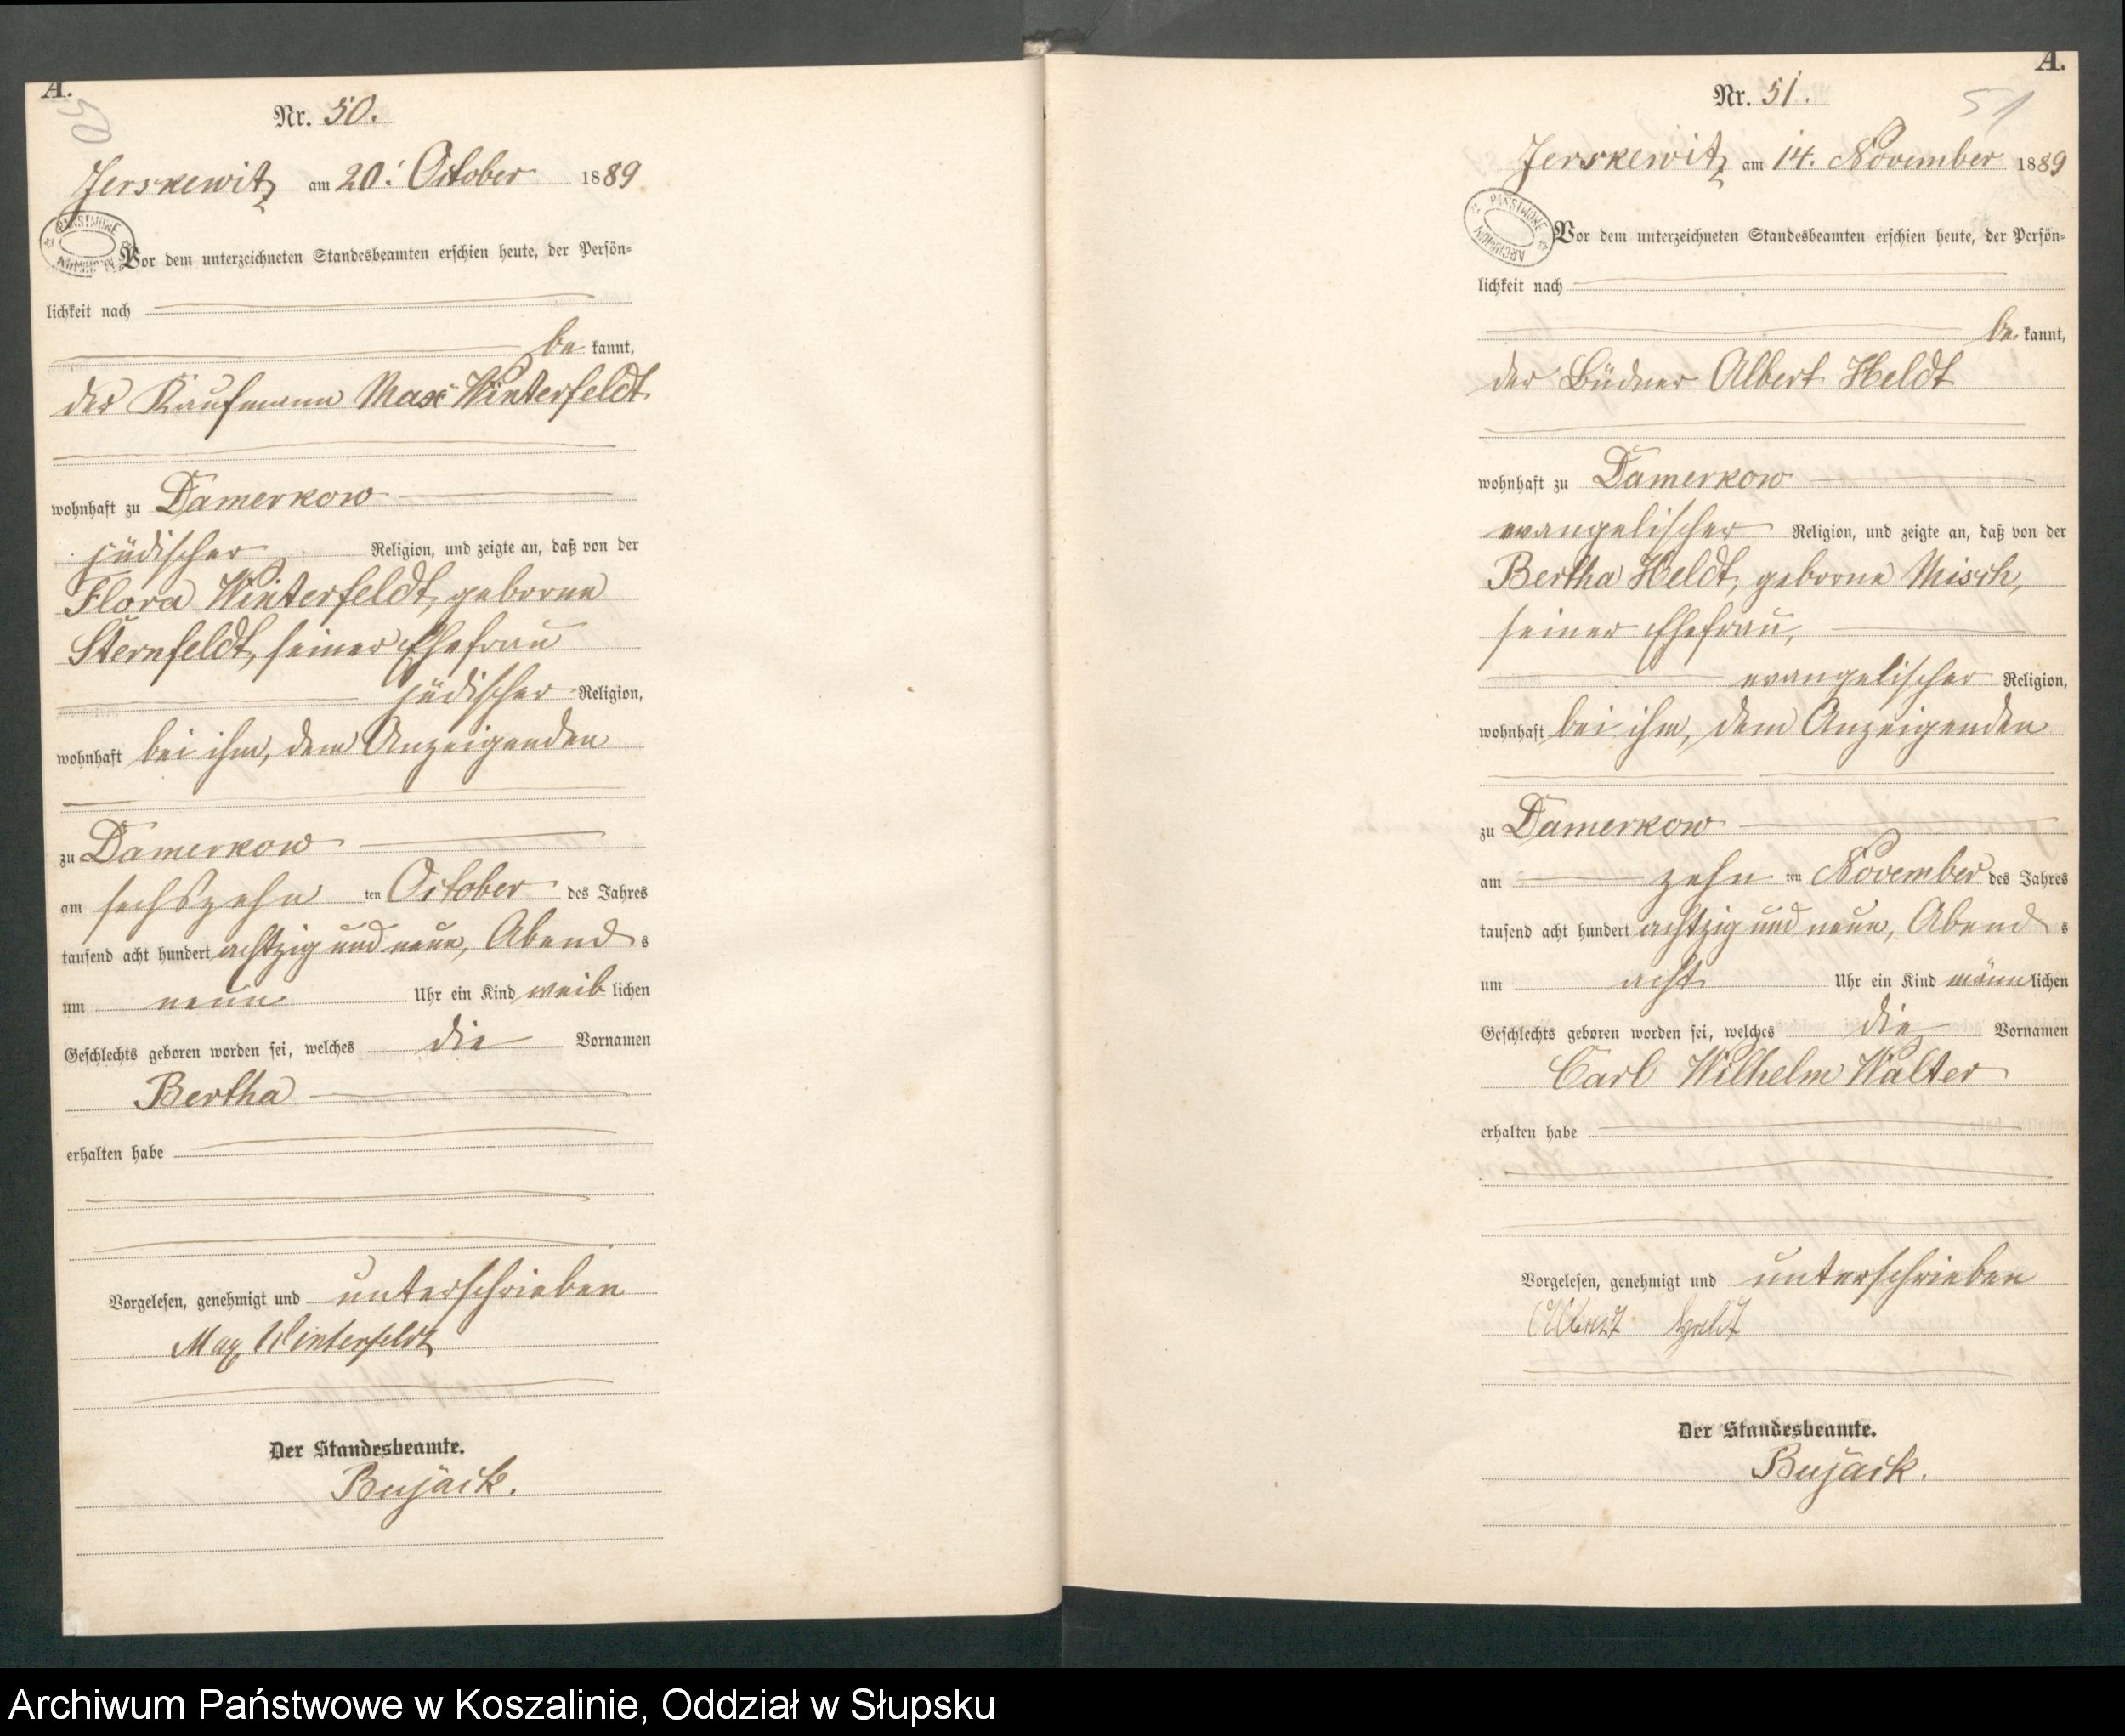 A.
50
Nr. 50.
Jerskewitz am 20. October 1889
Vor dem unterzeichneten Standesbeamten erschien heute, der Persön-
lichkeit nach
be kannt,
der Kaufmann Max Winterfeldt
wohnhaft zu Damerkow
jüdischer Religion, und zeigte an, daß von der
Flora Winterfeldt, geborne
Sternfeldt, seiner Ehefrau
jüdischer Religion,
wohnhaft bei ihm, dem Anzeigenden
zu Damerkow
am sechszehn ten October des Jahres
tausend acht hundert achtzig und neun, Abend s
um neun Uhr ein Kind weib lichen
Geschlechts geboren worden sei, welches die Vornamen
Bertha
erhalten habe
Vorgelesen, genehmigt und unterschrieben
Max Winterfeldt
Der Standesbeamte.
Bujack.
A.
51
Nr. 51.
Jerskewitz am 14. November 1889
PAŃSTWOWE ARCHIWUM
Vor dem unterzeichneten Standesbeamten erschien heute, der Persön-
lichkeit nach
be kannt,
der Büdner Albert Heldt
wohnhaft zu Damerkow
evangelischer Religion, und zeigte an, daß von der
Bertha Heldt, geborne Misch,
seiner Ehefrau,
evangelischer Religion,
wohnhaft bei ihm, dem Anzeigenden
zu Damerkow
am zehn ten November des Jahres
tausend acht hundert achtzig und neun, Abend s
um acht Uhr ein Kind männ lichen
Geschlechts geboren worden sei, welches die Vornamen
Carl Wilhelm Walter
erhalten habe
Vorgelesen, genehmigt und unterschrieben
Albert Heldt
Der Standesbeamte.
Bujack.
Archiwum Państwowe w Koszalinie, Oddział w Słupsku